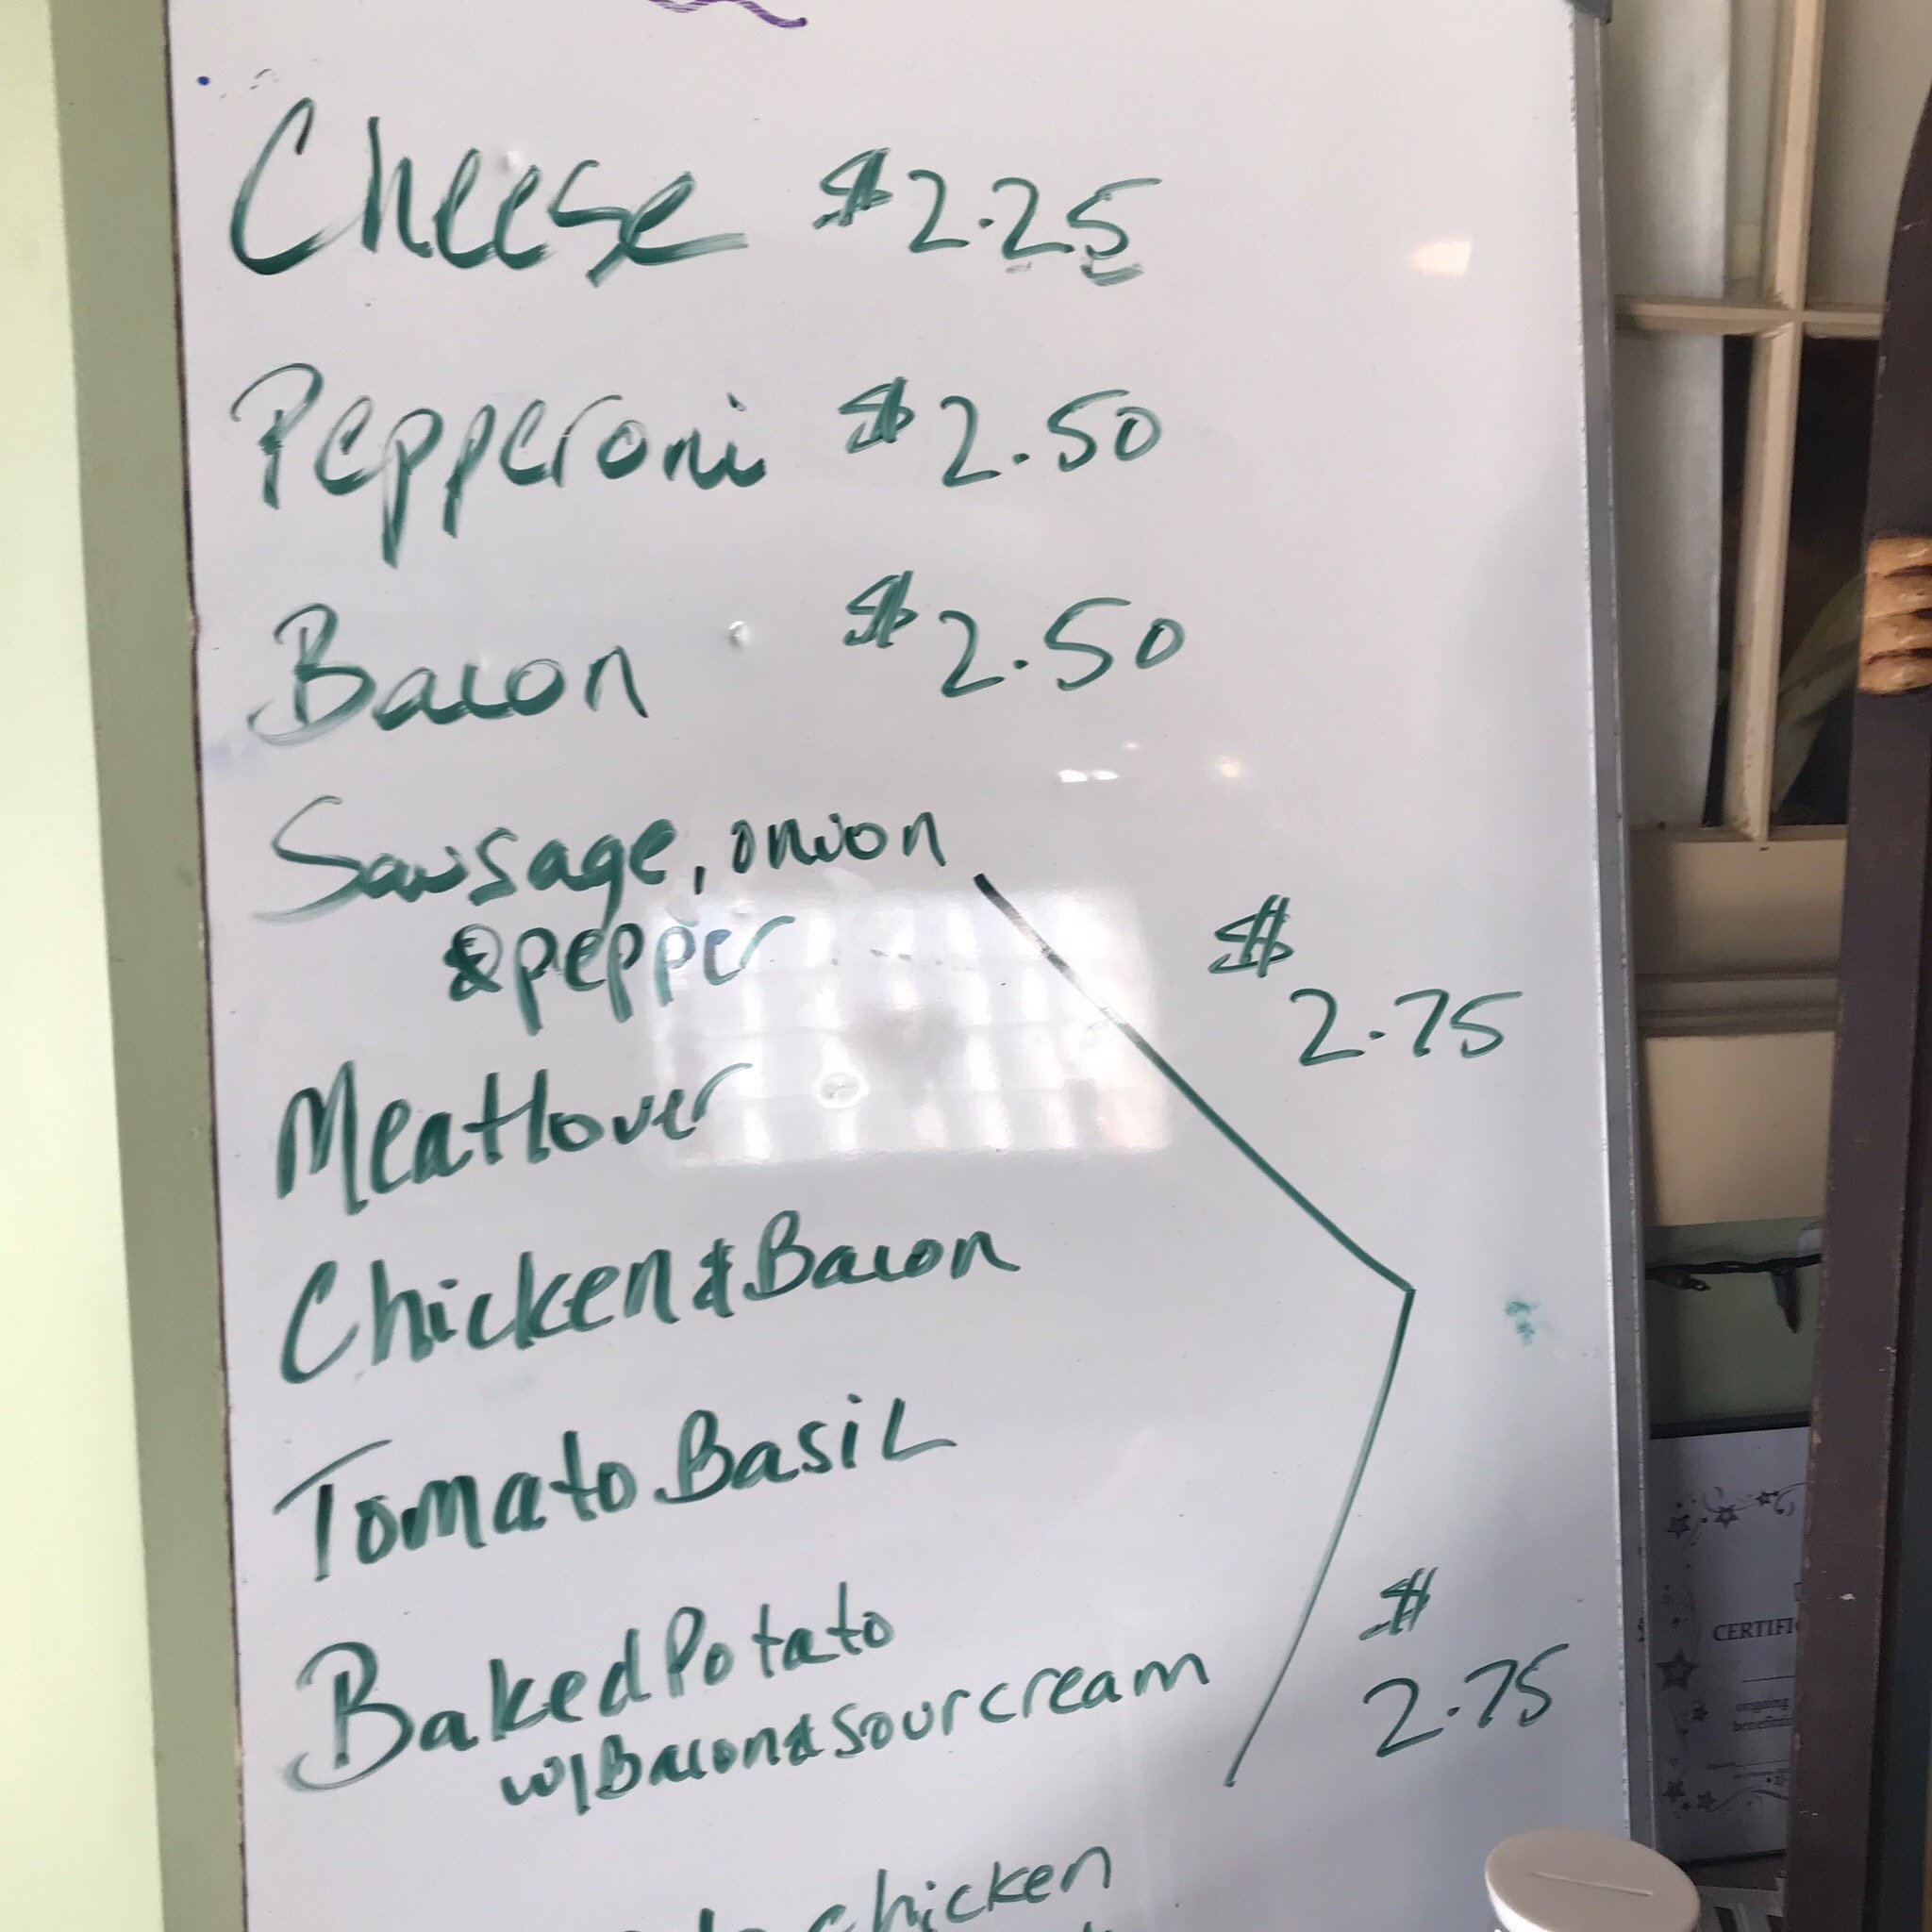 Cheese $2.25
Pepperoni $2.50
Bacon $2.50
Sausage, onion
& pepper
$
2.75
Meatlover
Chicken & Bacon
Tomato Basil
Baked Potato
w/Bacon & Sour cream
$
2.75
chicken
CERTIFI
ongoing